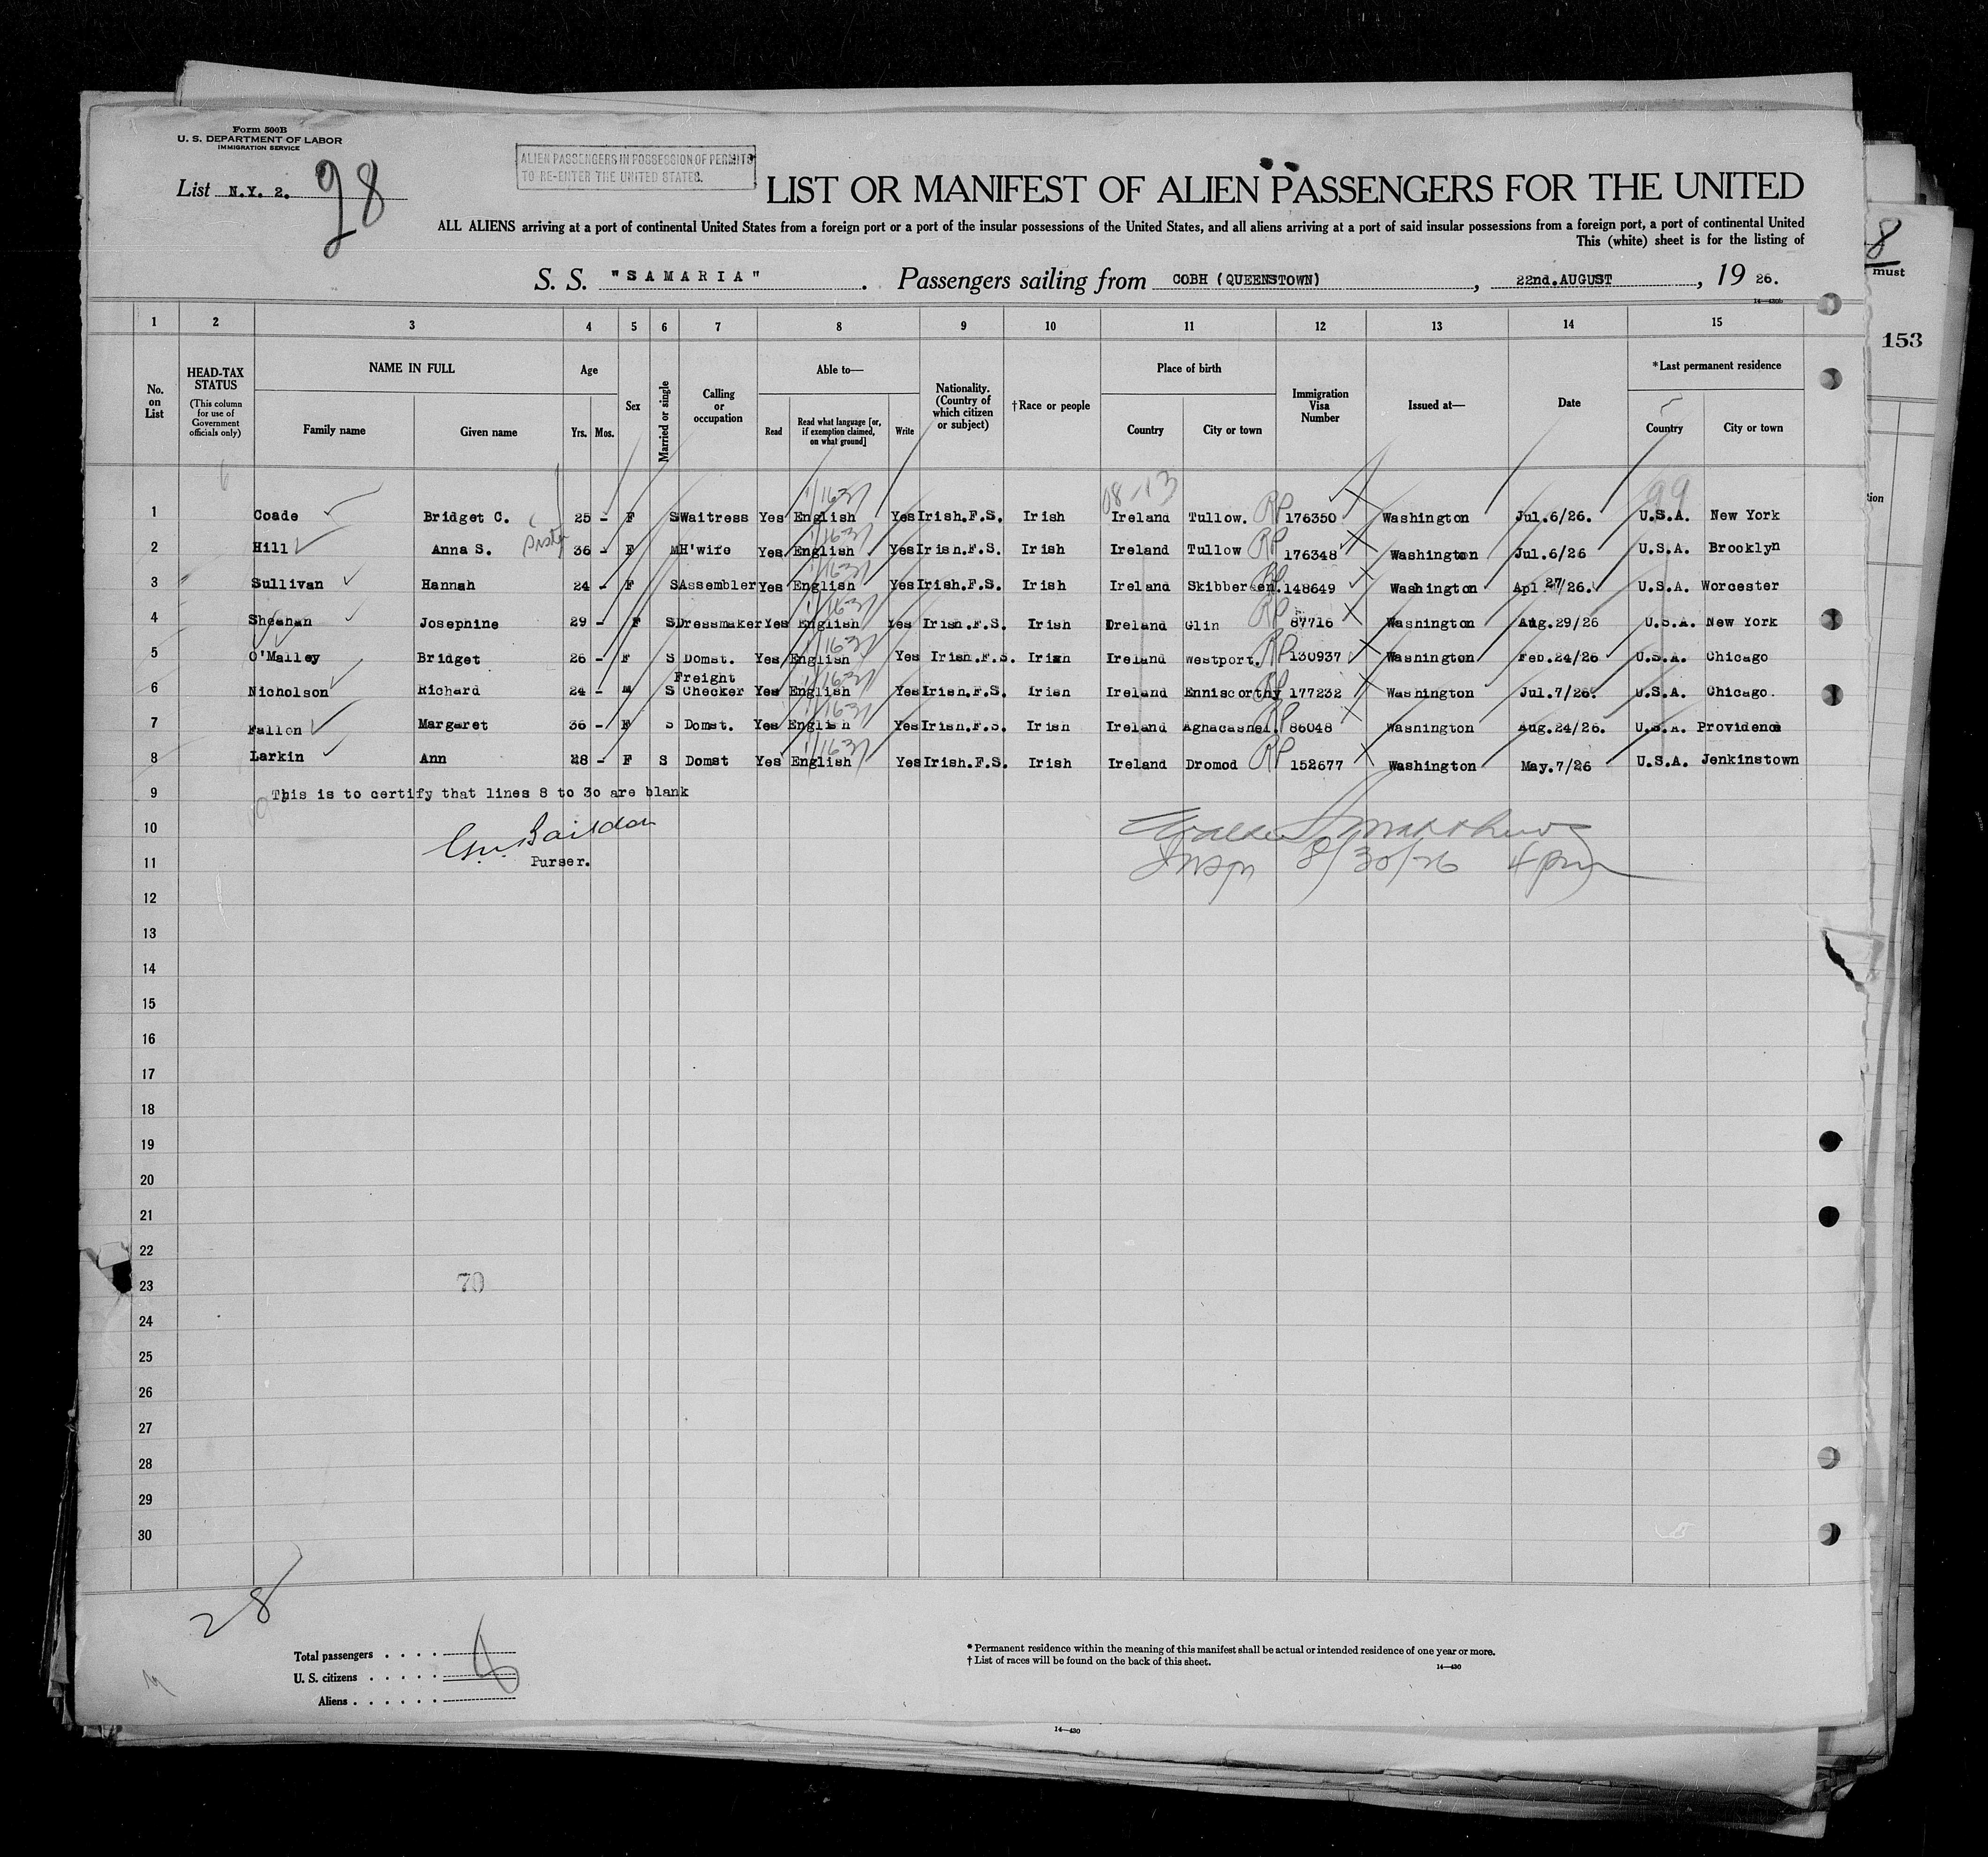 Form 500B
U. S. DEPARTMENT OF LABOR
IMMIGRATION SERVICE
List N.Y. 2. 28
ALIEN PASSENGERS IN POSSESSION OF PERMITS
TO RE-ENTER THE UNITED STATES.
LIST OR MANIFEST OF ALIEN PASSENGERS FOR THE UNITED
ALL ALIENS arriving at a port of continental United States from a foreign port or a port of the insular possessions of the United States, and all aliens arriving at a port of said insular possessions from a foreign port, a port of continental United
This (white) sheet is for the listing of
S. S. "SAMARIA". Passengers sailing from COBH (QUEENSTOWN), 22nd. AUGUST, 19 26.
14—430b
8
must
153
tion
1 2 3 4 5 6 7 8 9 10 11 12 13 14 15
No. on List
HEAD-TAX STATUS
(This column for use of Government officials only)
NAME IN FULL
Family name Given name
Age
Yrs. Mos.
Sex
Married or single
Calling or occupation
Able to—
Read Read what language [or, if exemption claimed, on what ground] Write
Nationality. (Country of which citizen or subject)
†Race or people
Place of birth
Country City or town
Immigration Visa Number
Issued at—
Date
*Last permanent residence
Country City or town
08-13 99
1 Coade Bridget C. 25 - F S Waitress Yes English Yes Irish.F.S. Irish Ireland Tullow. RP 176350 Washington Jul.6/26. U.S.A. New York
2 Hill Anna S. sister 36 - F M H'wife Yes English Yes Irish.F.S. Irish Ireland Tullow RP 176348 Washington Jul.6/26 U.S.A. Brooklyn
3 Sullivan Hannah 24 - F S Assembler Yes English Yes Irish.F.S. Irish Ireland Skibbereen. RP 148649 Washington Apl 27/26. U.S.A. Worcester
4 Sheehan Josephine 29 - F S Dressmaker Yes English Yes Irish.F.S. Irish Ireland Glin RP 87716 Washington Aug.29/26 U.S.A. New York
5 O'Malley Bridget 26 - F S Domst. Yes English Yes Irish.F.S. Irish Ireland Westport. RP 130937 Washington Feb.24/26 U.S.A. Chicago
6 Nicholson Richard 24 - M S Freight Checker Yes English Yes Irish.F.S. Irish Ireland Enniscorthy RP 177232 Washington Jul.7/26. U.S.A. Chicago.
7 Fallon Margaret 36 - F S Domst. Yes English Yes Irish.F.S. Irish Ireland Aghacashel. RP 86048 Washington Aug.24/26. U.S.A. Providence
8 Larkin Ann 28 - F S Domst Yes English Yes Irish.F.S. Irish Ireland Dromod RP 152677 Washington May.7/26 U.S.A. Jenkinstown
9 This is to certify that lines 8 to 30 are blank
10 Matthews
11 Purser. Insp 8/30/26 4 pm
12
13
14
15
16
17
18
19
20
21
22
23 70
24
25
26
27
28
29
30
28
Total passengers
U. S. citizens
Aliens
* Permanent residence within the meaning of this manifest shall be actual or intended residence of one year or more.
† List of races will be found on the back of this sheet.
14—430
14—430